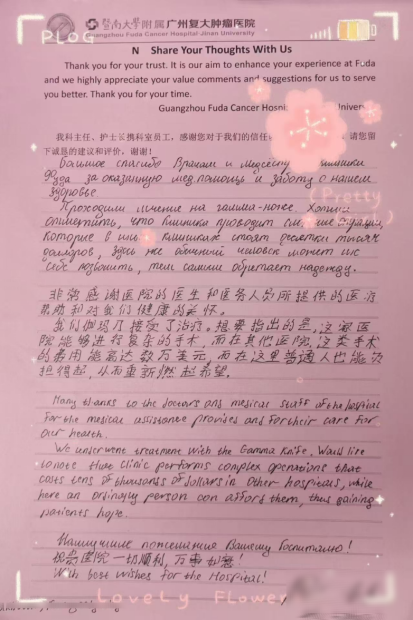 PLOG
暨南大学附属广州复大肿瘤医院
Guangzhou Fuda Cancer Hospital-Jinan University
N Share Your Thoughts With Us
Thank you for your trust. It is our aim to enhance your experience at Fuda
and we highly appreciate your value comments and suggestions for us to serve
you better. Thank you for your time.
Guangzhou Fuda Cancer
我科主任、护士长携科室员工，感谢您对于我们的信任 请您留
下诚恳的建议和评价，谢谢！
Большое спасибо Врачам и медсестру клиники
фуда за оказанную мед помощь и заботу о нашем
здоровье
(Pretty
Проходили лечение на гамма-ноже. Хотим
отметить, что клиника проводит операции,
Которые в клиниках стоят десятки тысяч
долларов, здесь же обычный человек может их
себе позволить, тем самым обретает надежду.
非常感谢医院的医生和医务人员所提供的医疗
帮助和对我们健康的关怀。
我们 接受了治疗。想要指出的是，这家医
院能够进行复杂的手术，而在其他医院，这类手术
的费用能高达数万美元，而在这里普通人也能
担得起，从而重新燃起希望。
Many thanks to the doctors and medical staff of the hospital
for the medical assistance provides and for their care for
our health.
We underwent treatment with the Gamma Knife. Would like
to note that clinic performs complex operations that
costs tens of thousands of dollars in other hospitals, while
here an ordinary person can afford them, thus gaining
patients hope.
Наилучшие пожелания Вашему Госпиталю!
祝贵医院一切顺利，万事如意！
With best wishes for the Hospital!
Lovely Flower